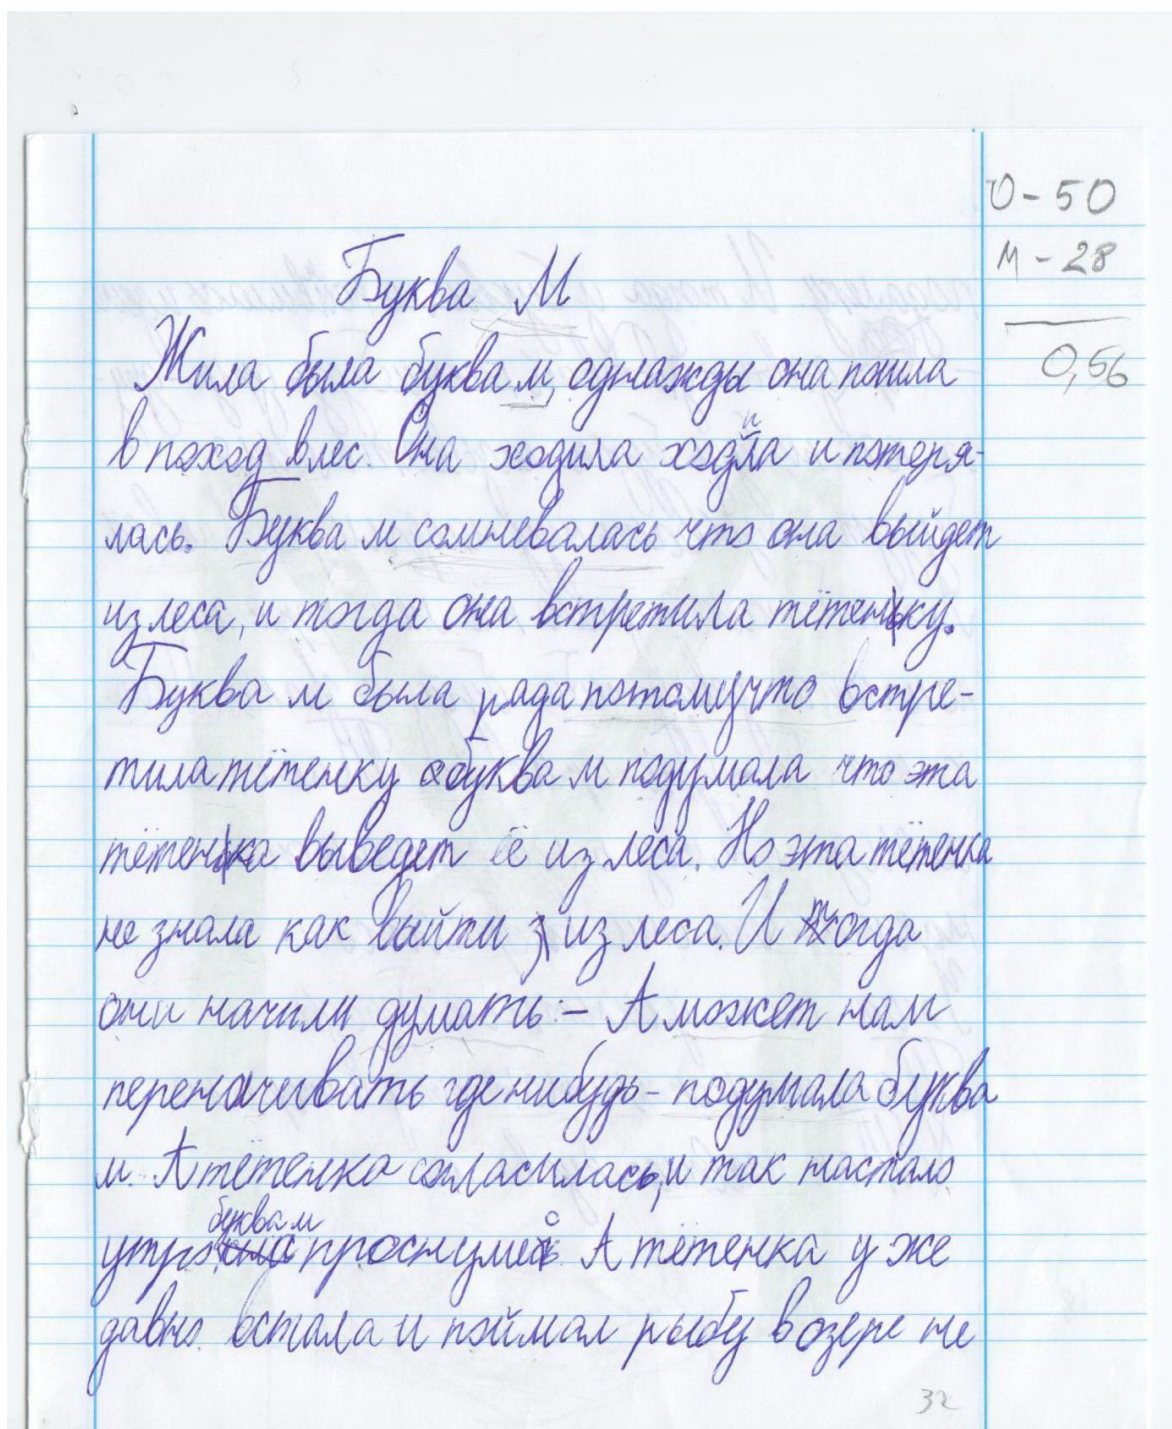 О - 50
М - 28
0,56
Буква М
Жила была буква м, однажды она пошла
в поход в лес. Она ходила ходила и потеря-
лась. Буква м сомневалась что она выйдет
из леса, и тогда она встретила тётенку.
Буква м была рада потомучто встре-
тила тётенку а буква м подумала что эта
тётенка выведет её из леса. Но эта тётенка
не знала как выйти из леса. И тогда
они начили думать: - А может нам
переначивать где нибудь - подумала буква
м. А тётенка согласилась, и так настало
утро буква м
А тётенка уже
давно встала и поймал рыбу в озере не
32